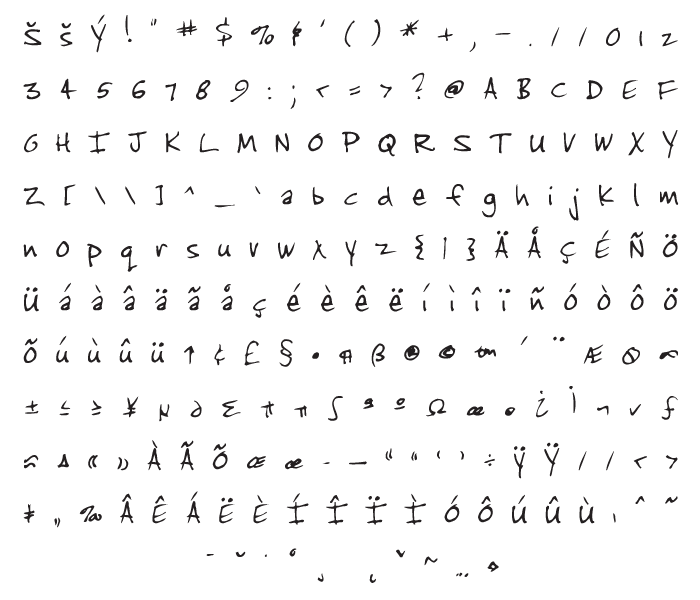 Š š Ý ! " # $ % & ' ( ) * + , - . / / 0 1 2
3 4 5 6 7 8 9 : ; < = > ? @ A B C D E F
G H I J K L M N O P Q R S T U V W X Y
Z [ \ \ ] ^ _ ` a b c d e f g h i j k l m
n o p q r s u v w x y z { | } Ä Å Ç É Ñ Ö
Ü á à â ä ã å ç é è ê ë í ì î ï ñ ó ò ô ö
õ ú ù û ü † ¢ £ § • ¶ ß ® © ™ ´ ¨ Æ Ø ∞
± ≤ ≥ ¥ µ ∂ Σ π π ∫ ª º Ω æ ø ¿ ¡ ¬ √ ƒ
≈ ∆ « » À Ã Õ Œ œ – — “ “ ‘ ’ ÷ ÿ Ÿ / / < >
‡ „ ‰ Â Ê Á Ë È Í Î Ï Ì Ó Ô Ú Û Ù ı ˆ ˜
¯ ˘ ˙ ˚ ¸ ˛ ˇ ~ …